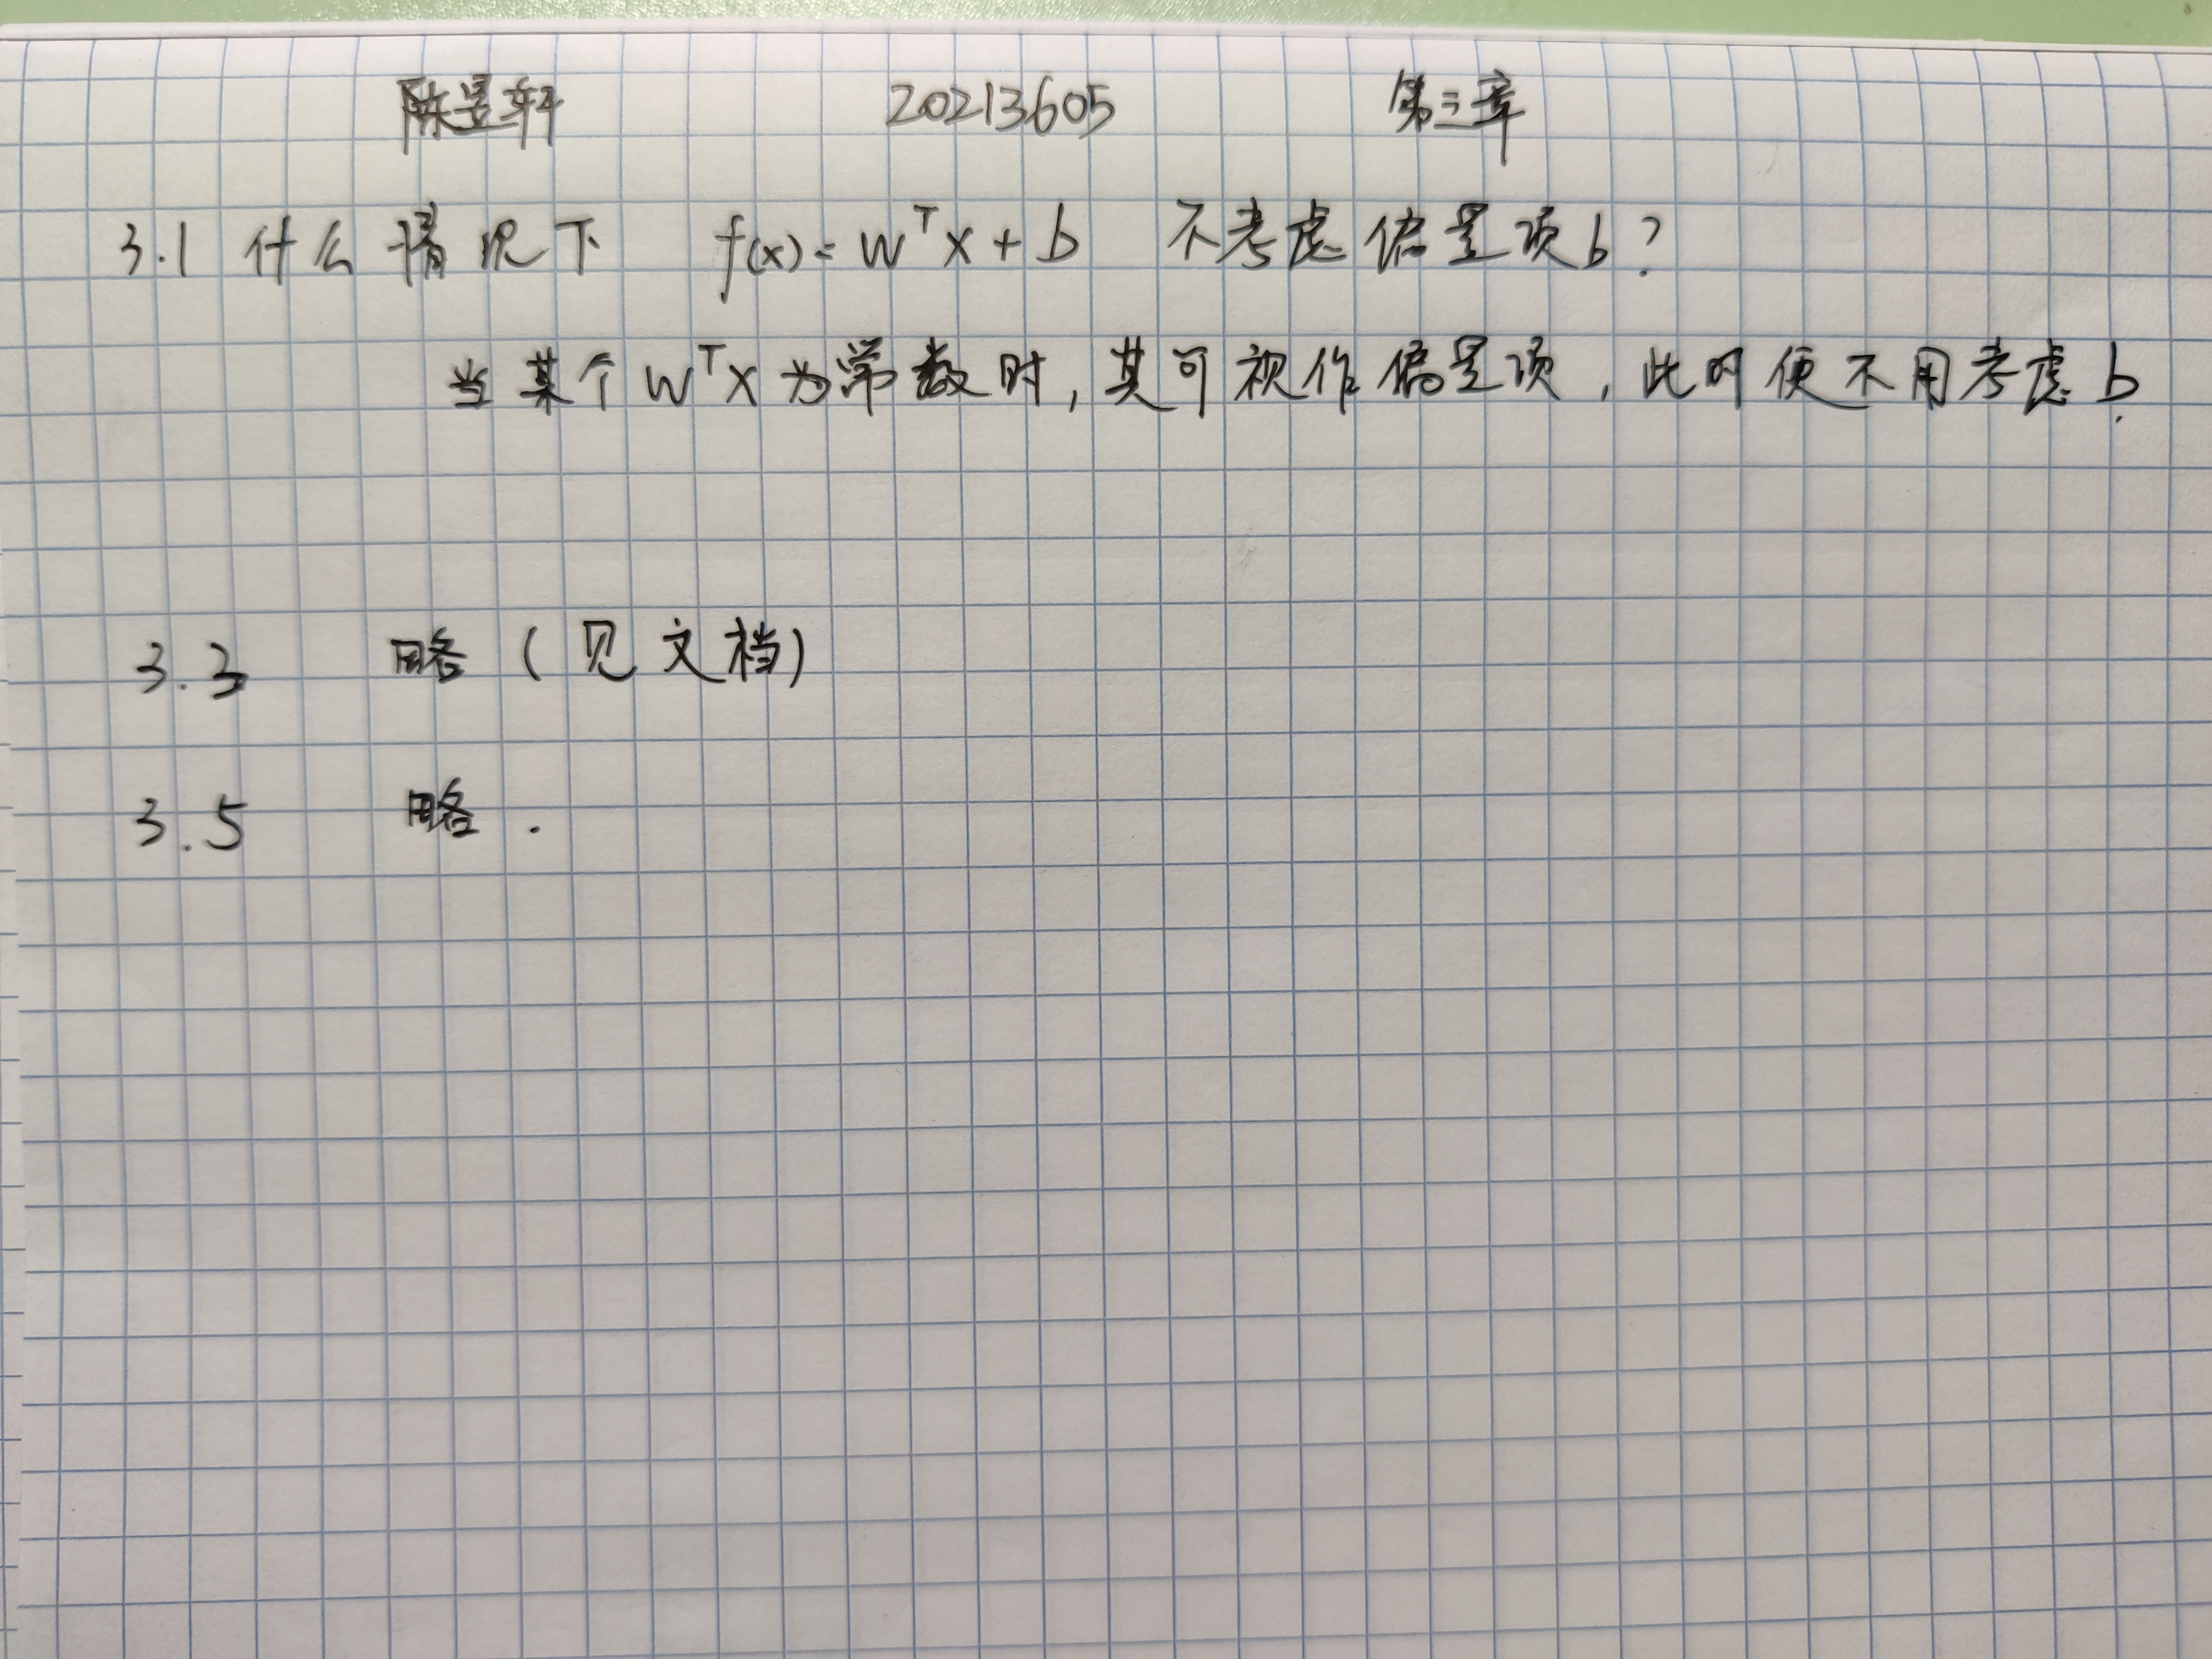 陈昱轩 20213605 第三章
3.1 什么情况下 f(x) = wᵀx + b 不考虑偏置项b?
当某个wᵀx为常数时,其可视作偏置项,此时便不用考虑b.
3.3 略(见文档)
3.5 略.